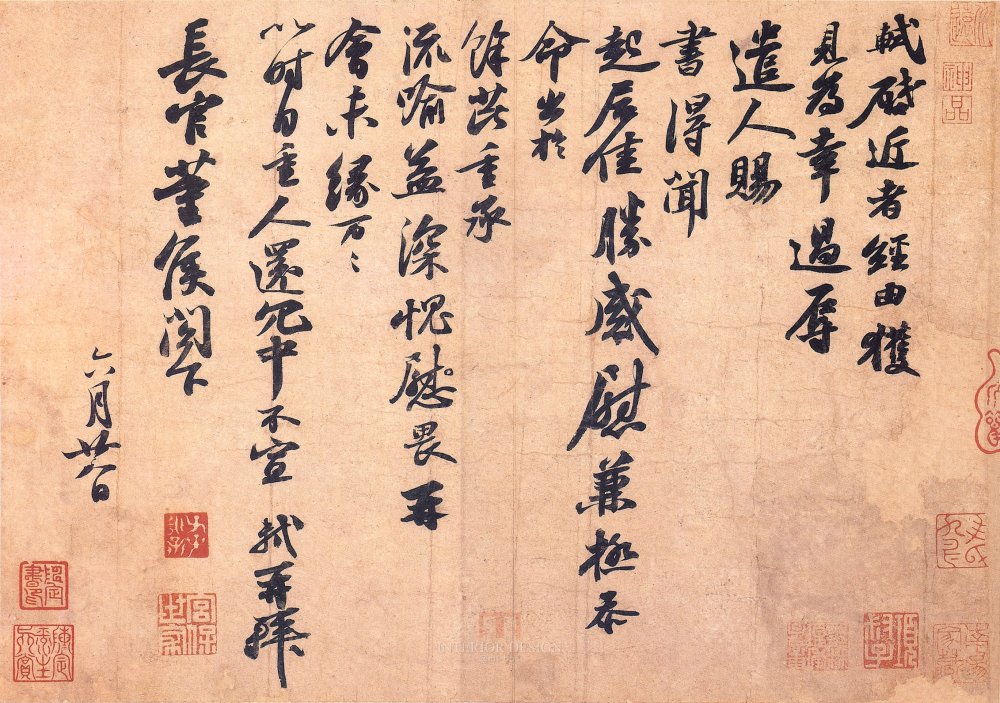 軾啓近者經由獲
見為幸過辱
遣人賜
書得聞
起居佳勝感慰兼極忝
命出於
餘芘重承
流喻益深愧慰畏再
會未緣万〻
以时自重人還冗中不宣 軾再拜
長官董侯閣下
六月廿八日
神品
宮保世家
INTERIOR DESIGN